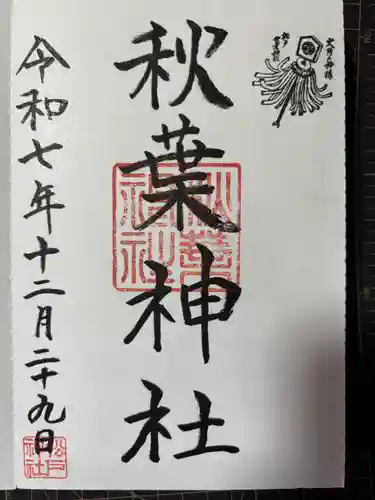 秋葉神社
令和七年十二月二十九日
秋葉神社
松戸神社